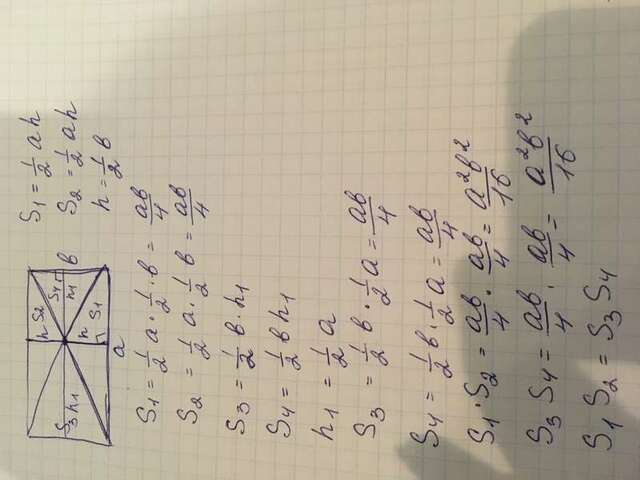 h S₂ S₄ h₁ S₃ h₁ h S₁ b
a
S₁ = 1/2 ah
S₂ = 1/2 ah
h = 1/2 b
S₁ = 1/2 a · 1/2 b = ab/4
S₂ = 1/2 a · 1/2 b = ab/4
S₃ = 1/2 b · h₁
S₄ = 1/2 b h₁
h₁ = 1/2 a
S₃ = 1/2 b · 1/2 a = ab/4
S₄ = 1/2 b · 1/2 a = ab/4
S₁ · S₂ = ab/4 · ab/4 = a²b²/16
S₃ S₄ = ab/4 · ab/4 = a²b²/16
S₁ S₂ = S₃ S₄